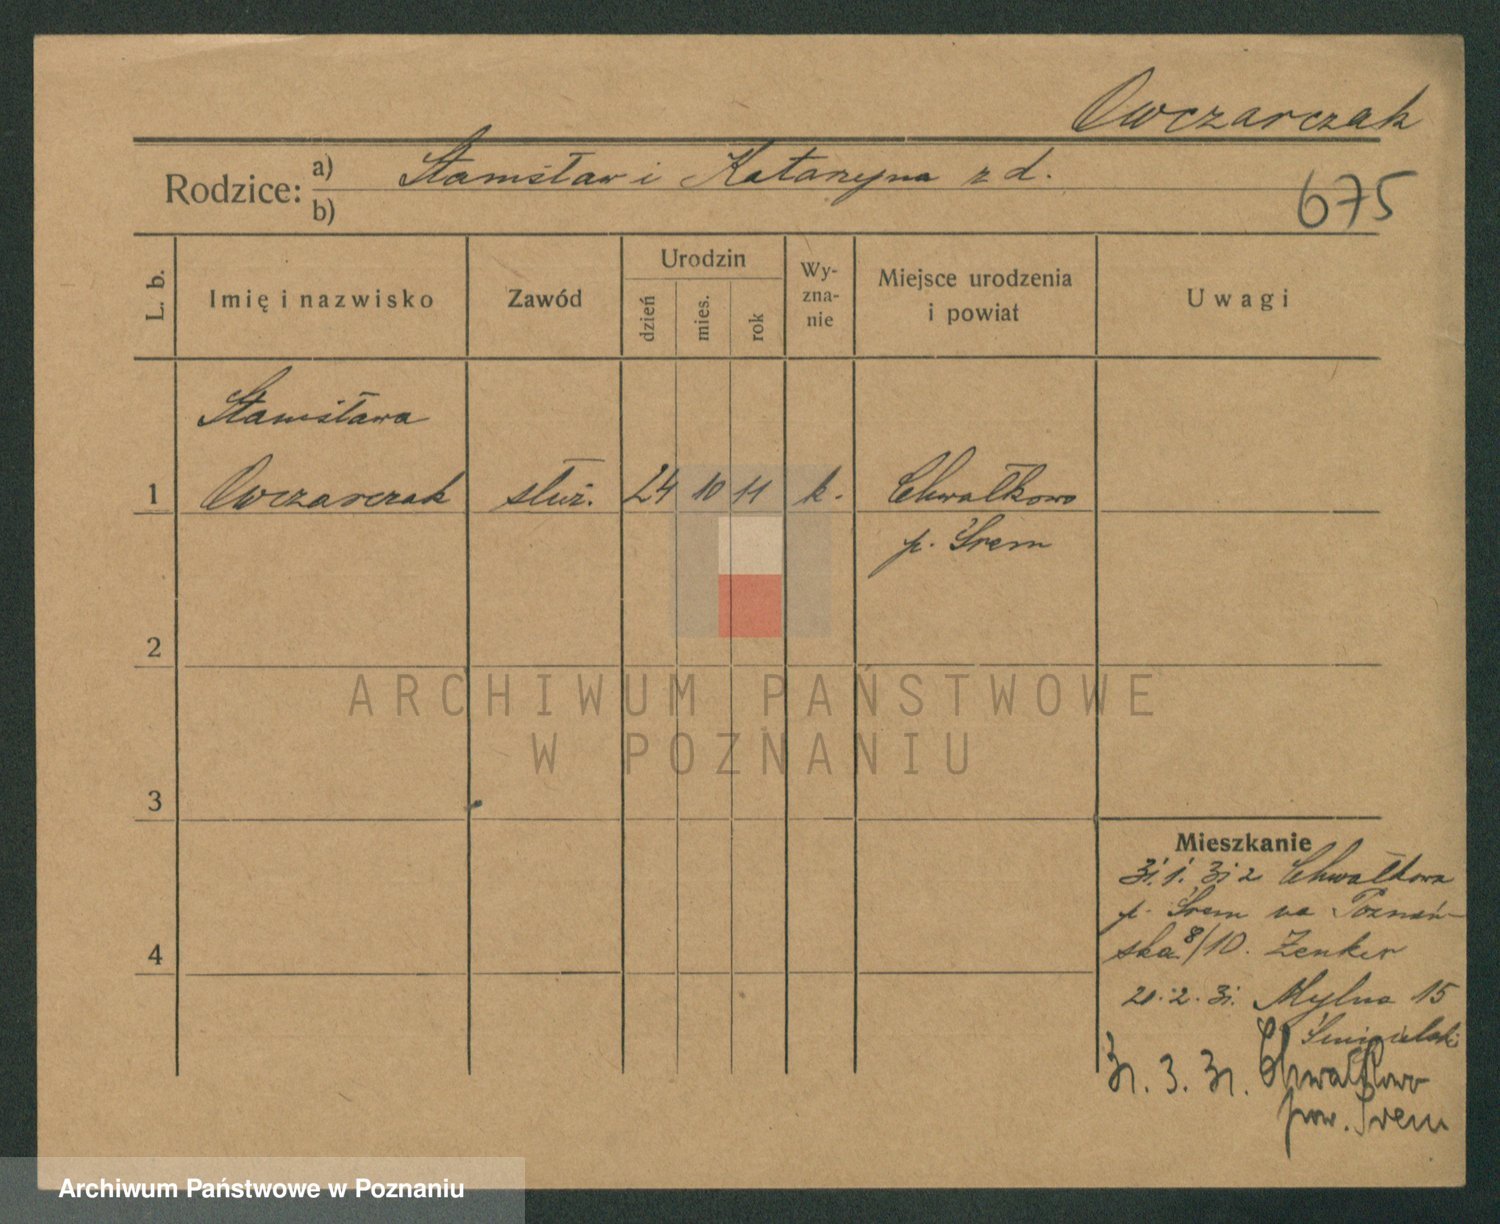 Owczarczak
Rodzice: a) Stanisław i Katarzyna z d.
b)
675
L. b.
Imię i nazwisko
Zawód
Urodzin
dzień
mies.
rok
Wy-
zna-
nie
Miejsce urodzenia
i powiat
Uwagi
Stanisława
1 Owczarczak służ. 24 10 11 k. Chwałkowo
p. Śrem
2
3
4
Mieszkanie
31.1.31 z Chwałkowa
p. Śrem na Poznań-
ska 8/10. Zenker
20.2.31. Mylna 15
31.3.31. Chwałkowo
pow. Śrem
ARCHIWUM PAŃSTWOWE
W POZNANIU
Archiwum Państwowe w Poznaniu